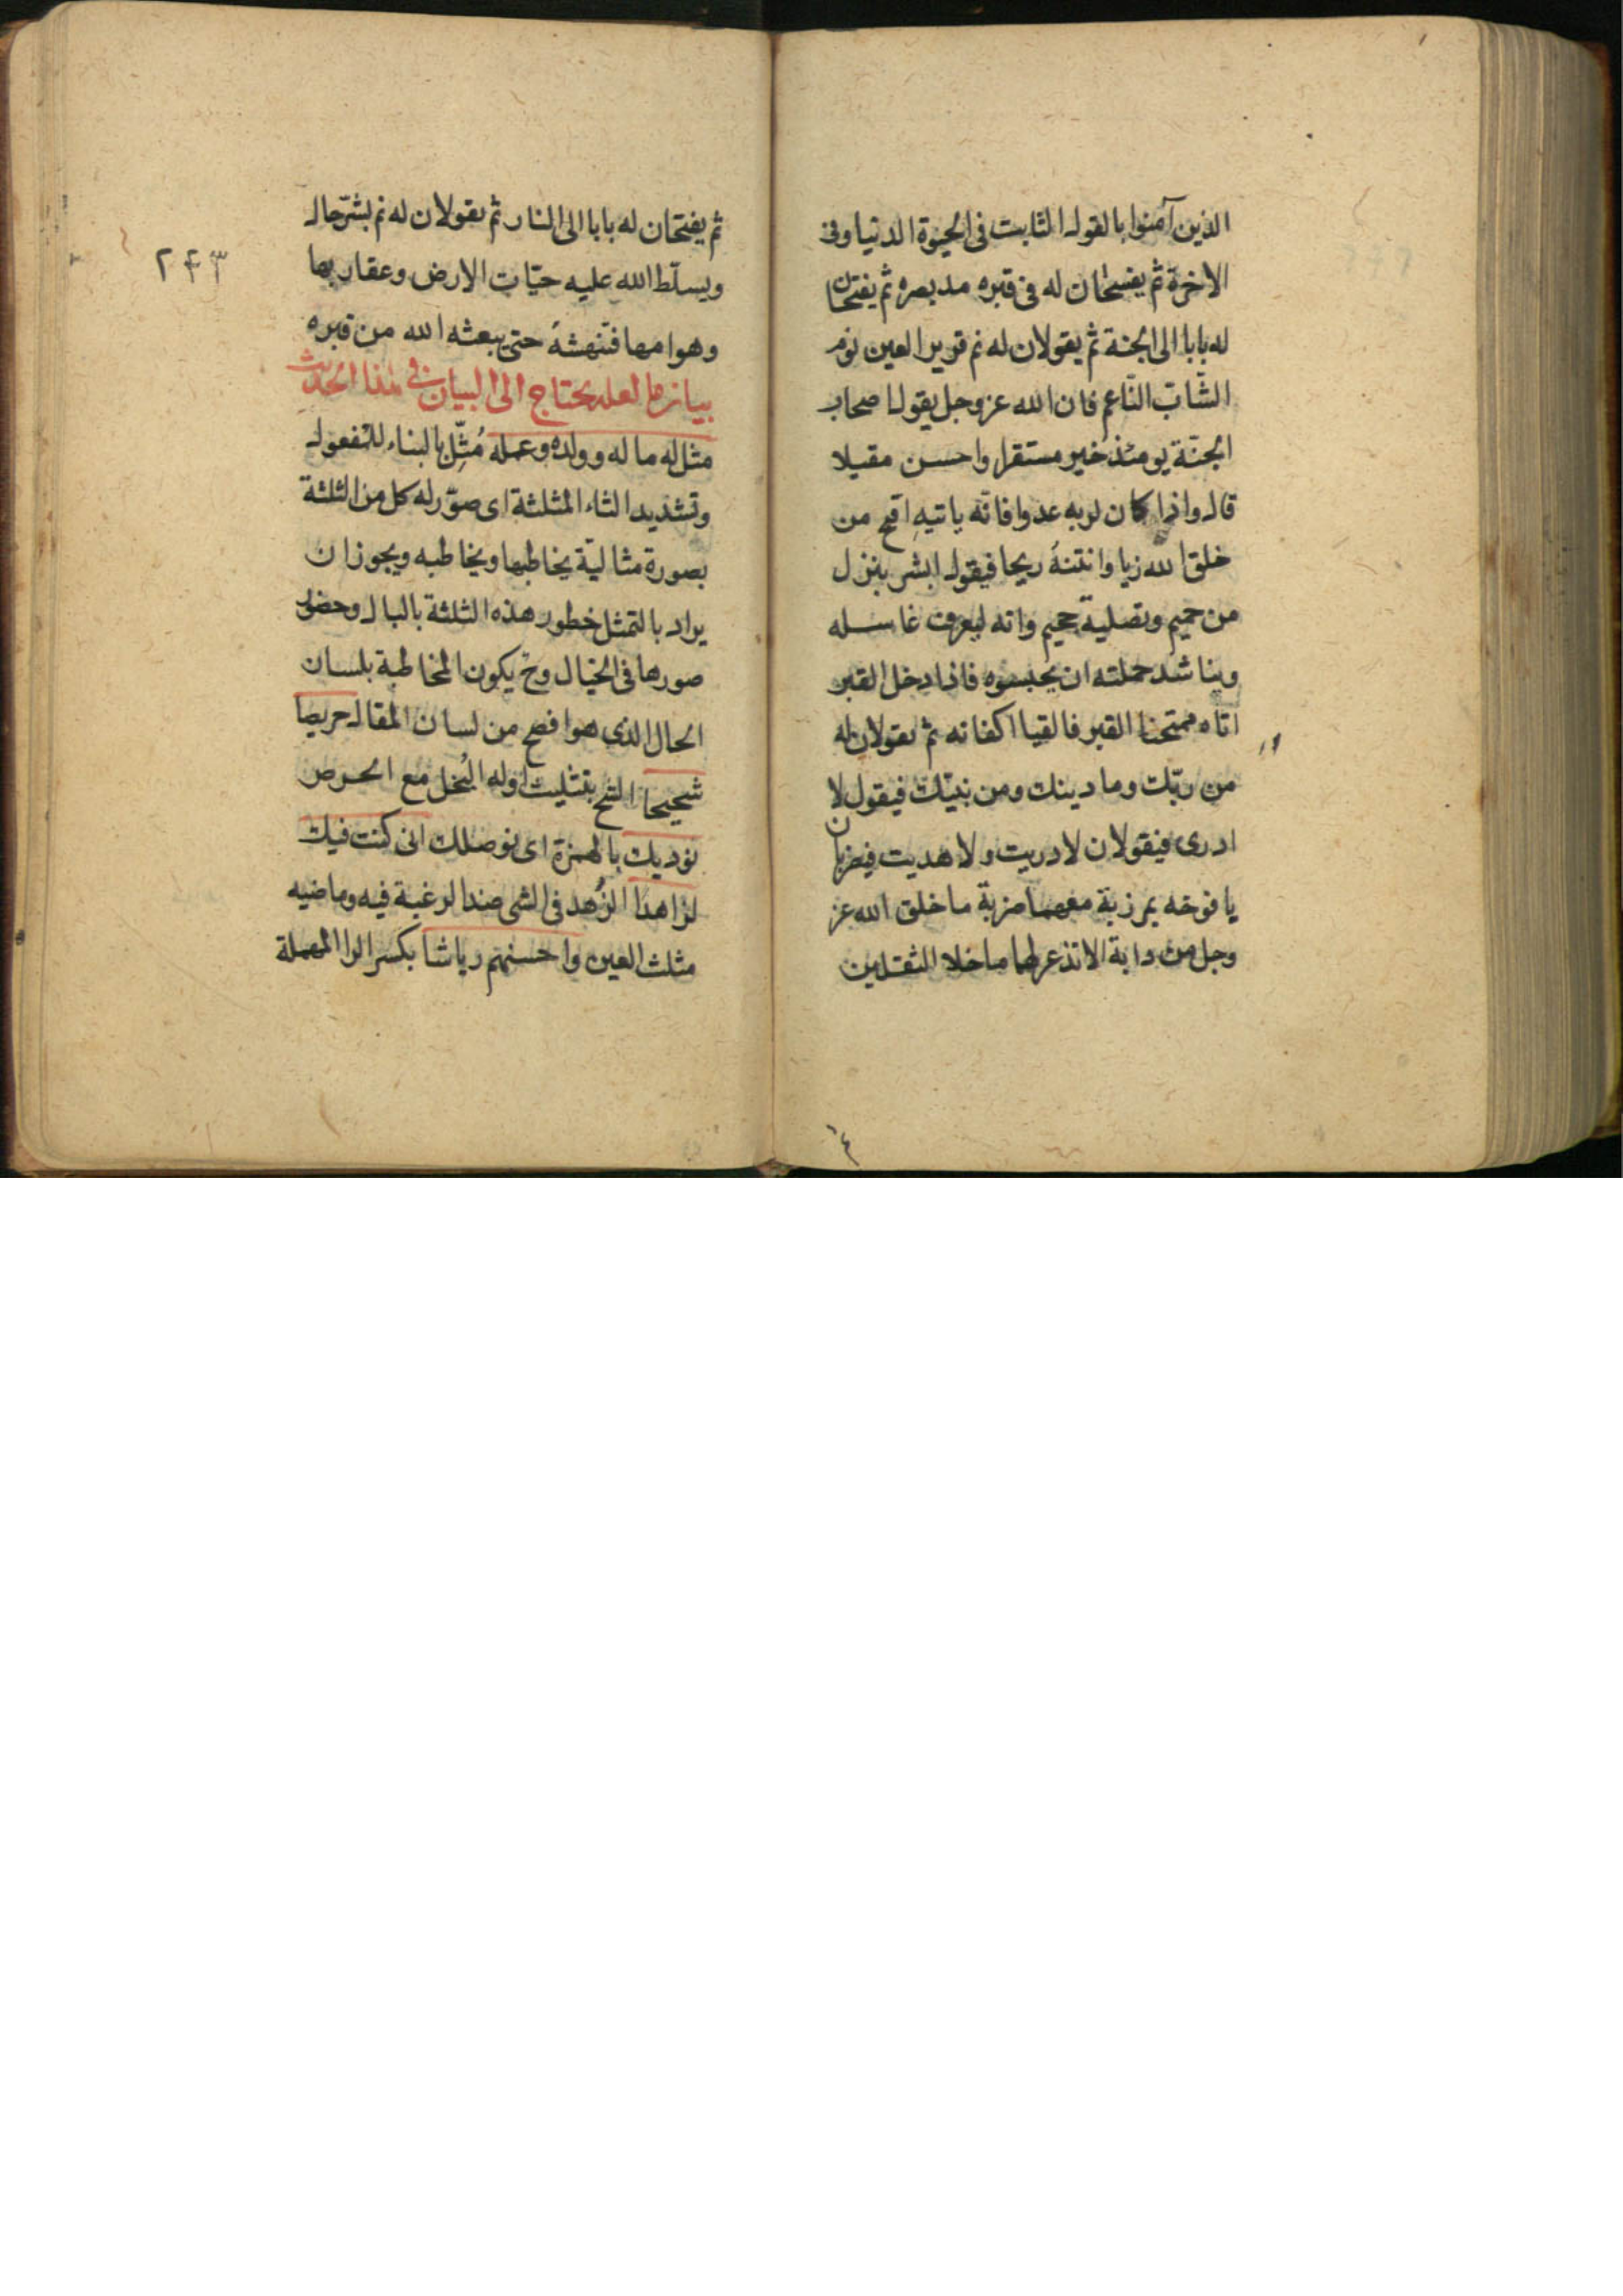 الذين آمنوا بالقول الثابت فى الحيوة الدنيا وفى
الاخرة ثم يفسحان له فى قبره مد بصره ثم يفتحان
له بابا الى الجنة ثم يقولان له نم قرير العين نوم
الشّابّ النّاعم فان الله عز وجل يقول اصحاب
الجنّة يومئذ خير مستقرا واحسن مقيلا
قال واذا كان لربه عدوا فانّه ياتيه اقبح من
خلق الله زيا وانتنهُ ريحا فيقول ابشر بنزل
من حميم وتصلية جحيم وانه ليعرف غاسله
ويناشد حملته ان يحبسوه فاذا دخل القبر
اتاه ممتحنا القبر فالقيا اكفانه ثم يقولان له
من ربّك وما دينك ومن نبيّك فيقول لا
ادرى فيقولان لا دريت ولا هديت فيضربان
يافوخه بمرزبة معهما ضربة ما خلق الله عز
وجل من دابة الا تذعر لها ما خلا الثقلين
ثم يفتحان له بابا الى النار ثم يقولان له نم بشرّ حال
۲۴۳
ويسلّط الله عليه حيّات الارض وعقاربها
وهوامها فتنهشهُ حتى يبعثه الله من قبره
بيان ما لعله يحتاج الى البيان فى هذا الحديث
مثل له ماله وولده وعمله مُثِّل بالبناء للمفعول
وتشديد الثاء المثلثة اى صوّر له كل من الثلثة
بصورة مثاليّة يخاطبها ويخاطبه ويجوز ان
يراد بالتمثل خطور هذه الثلثة بالبال وحضور
صورها فى الخيال وح يكون المخاطبة بلسان
الحال الذى هو افصح من لسان المقال حريصا
شحيحا الشح بتثليث اوله البُخل مع الحرص
نؤديك بالهمزة اى نوصلك انى كنت فيك
لزاهدا الزُهد فى الشى ضد الرغبة فيه وماضيه
مثلث العين واحسنهم رياشا بكسر الرا المهملة